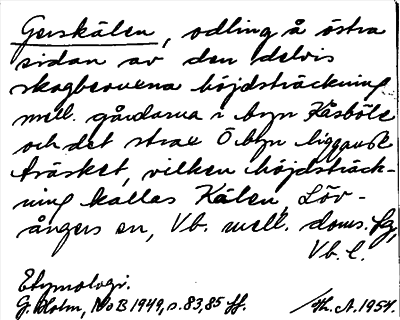 Gerskälen, odling å östra
sidan av den delvis
skogbevuxna höjdsträckning
mell. gårdarna i byn Kåsböle
och det strax Ö byn liggande
träsket, vilken höjdsträck-
ning kallas Kälen, Löv-
ångers sn, Vb. mell. doms.
Vb. l.
Etymologi.
G. Holm, NoB 1949, s. 83, 85 ff. /Th. A. 1954.